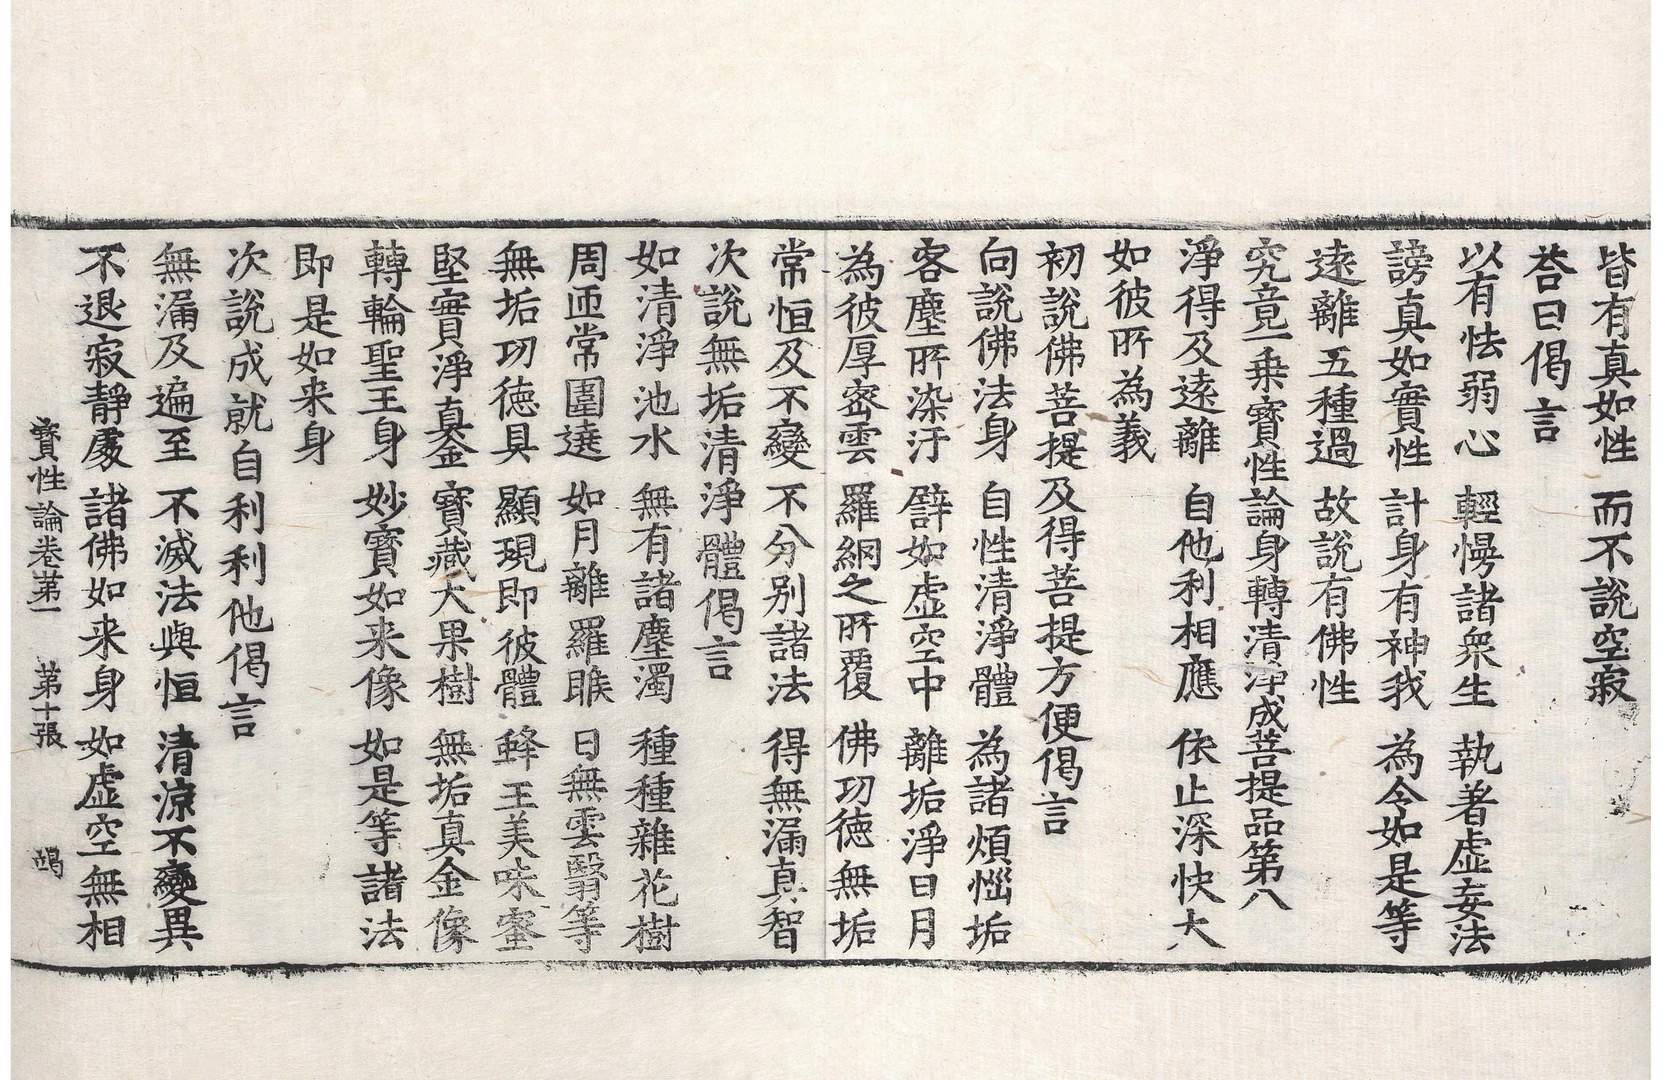 皆有真如性　而不說空寂
荅曰偈言
以有怯弱心　輕慢諸衆生　執著虛妄法
謗真如實性　計身有神我　為令如是等
遠離五種過　故說有佛性
究竟一乗寶性論身轉清淨成菩提品第八
淨得及遠離　自他利相應　依止深快大
如彼所為義
初說佛菩提及得菩提方便偈言
向說佛法身　自性清淨體　為諸煩惱垢
客塵所染汙　譬如虛空中　離垢淨日月
為彼厚密雲　羅網之所覆　佛功德無垢
常恒及不變　不分別諸法　得無漏真智
次說無垢清淨體偈言
如清淨池水　無有諸塵濁　種種雜花樹
周匝常圍遶　如月離羅睺　日無雲翳等
無垢功德具　顯現即彼體　蜂王美味蜜
堅實淨真金　寶藏大果樹　無垢真金像
轉輪聖王身　妙寶如来像　如是等諸法
即是如来身
次說成就自利利他偈言
無漏及遍至　不滅法與恒　清涼不變異
不退寂靜處　諸佛如来身　如虛空無相
寶性論卷第一　第十張